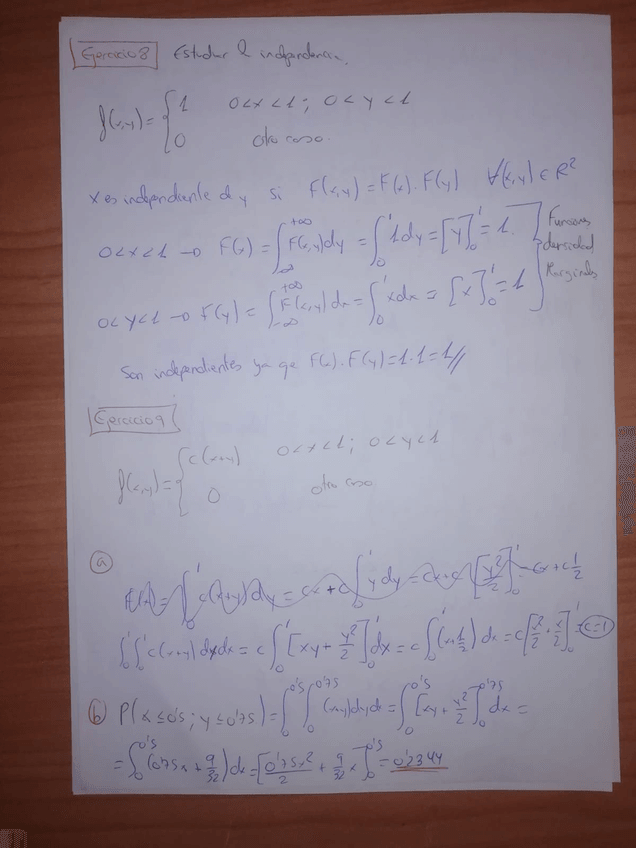 Ejercicio 8 Estudiar la independencia.
f(x,y) = { 1 0<x<1; 0<y<1
0 otro caso.
x es independiente de y si F(x,y) = F(x). F(y) ∀(x,y) ∈ R²
0<x<1 → F(x) = ∫_{-∞}^{+∞} F(x,y)dy = ∫_0^1 1dy = [y]_0^1 = 1.
0<y<1 → F(y) = ∫_{-∞}^{+∞} F(x,y)dx = ∫_0^1 xdx = [x]_0^1 = 1
Funciones
densidad
Marginales
Son independientes ya que F(x). F(y) = 1·1 = 1//
Ejercicio 9
f(x,y) = { c(x+y) 0<x<1; 0<y<1
0 otro caso.
a
F(x) = ∫_0^1 c(x+y)dy = cx + c∫_0^1 y dy = cx + c[y²/2]_0^1 = cx + c 1/2
∫_0^1 ∫_0^1 c(x+y) dydx = c∫_0^1 [xy + y²/2]_0^1 dx = c∫_0^1 (x+1/2) dx = c[x²/2 + x/2]_0^1 = c=1
b P(x ≤ 0'5; y ≤ 0'75) = ∫_0^{0'5} ∫_0^{0'75} (x+y)dydx = ∫_0^{0'5} [xy + y²/2]_0^{0'75} dx =
= ∫_0^{0'5} (0'75x + 9/32) dx = [0'75x²/2 + 9/32 x]_0^{0'5} = 0'2344